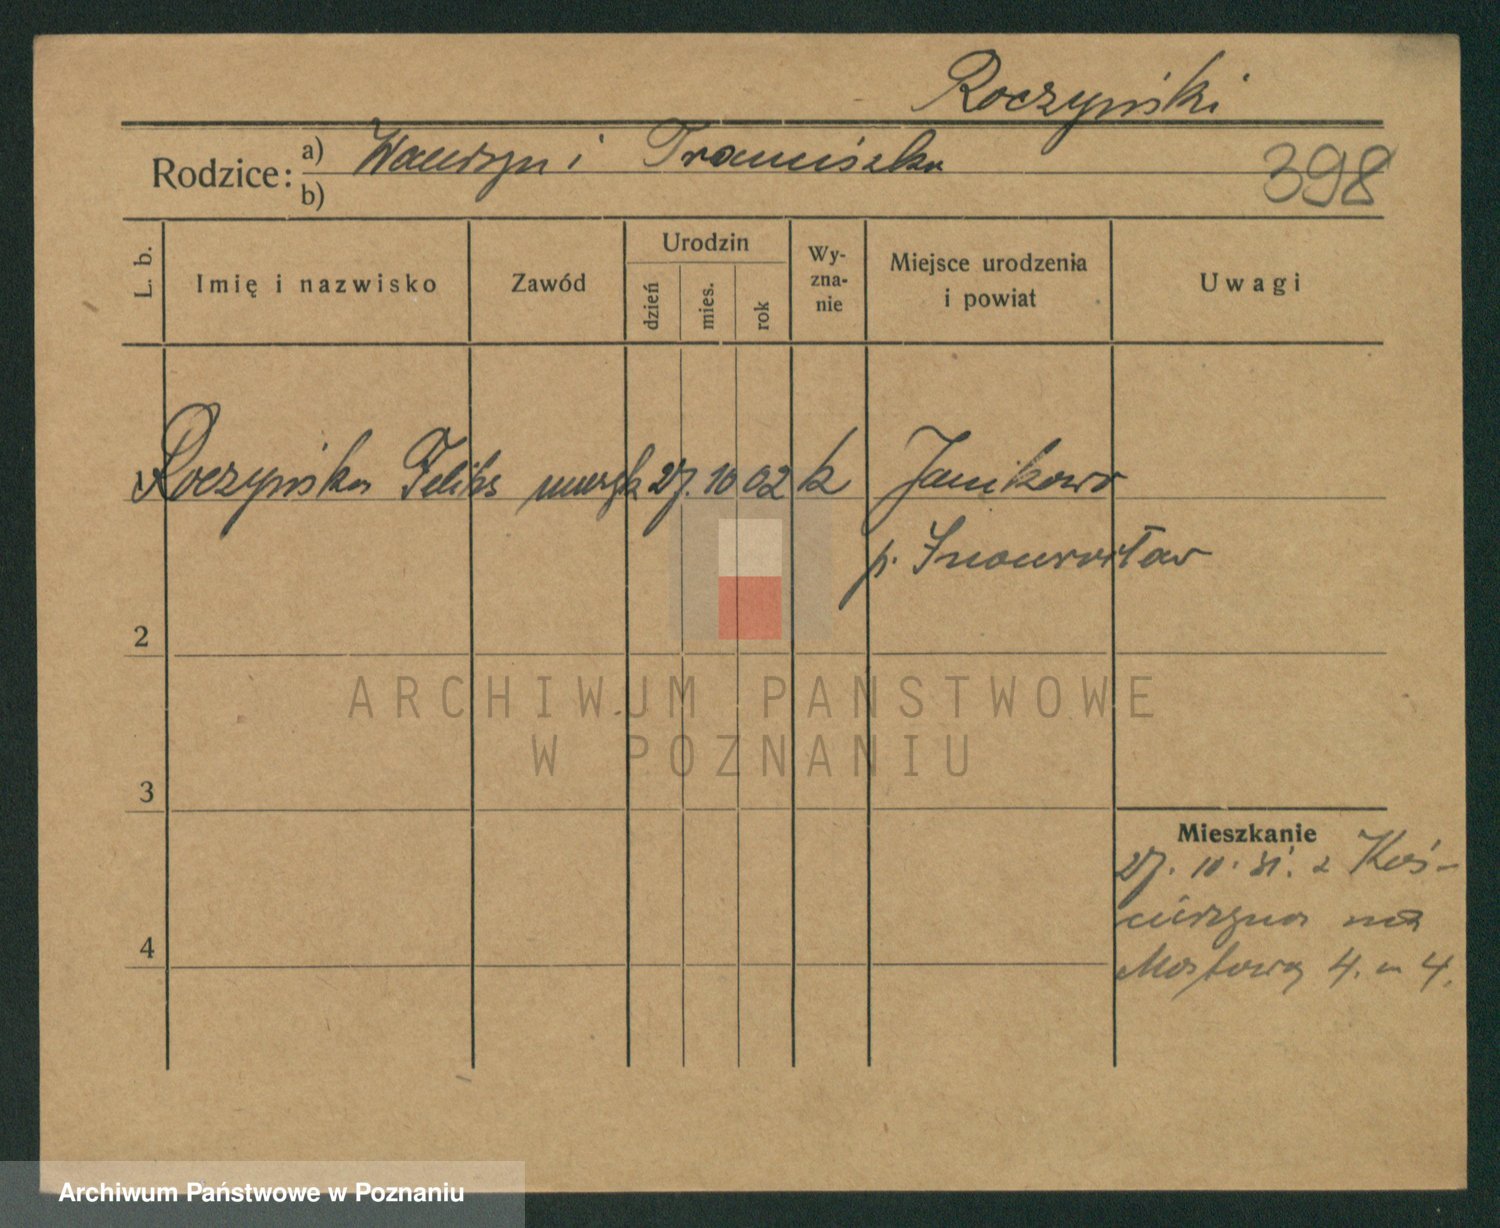 Roczyński
Rodzice: a) Wawrzyn i Franciszka
b)
398
L. b.
Imię i nazwisko
Zawód
Urodzin
dzień
mies.
rok
Wy-
zna-
nie
Miejsce urodzenia
i powiat
Uwagi
Roczyński Feliks 27. 10 02 k Janikowo
p. Inowrocław
2
3
4
Mieszkanie
27. 10. 31. z Koś-
cierzyna na
Mostowa 4. m 4.
ARCHIWUM PAŃSTWOWE
W POZNANIU
Archiwum Państwowe w Poznaniu